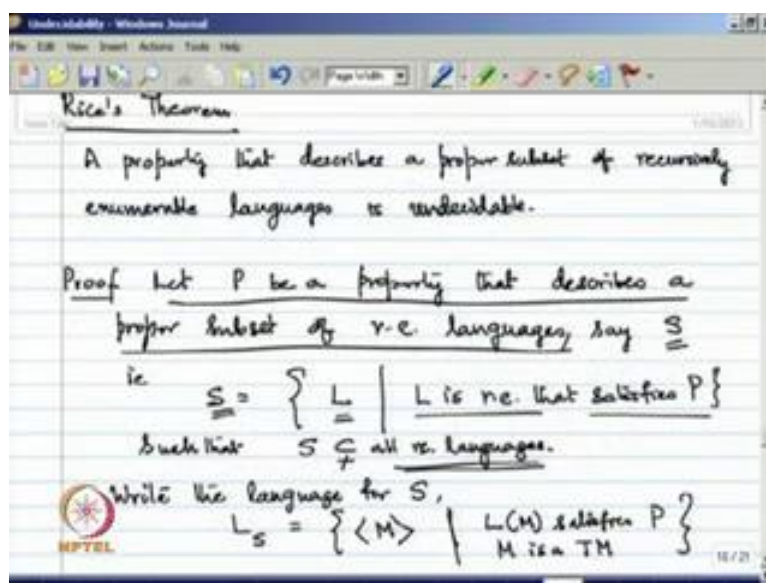 Undecidability - Windows Journal
File Edit View Insert Actions Tools Help
Page Width
Rice's Theorem
A property that describes a proper subset of recursively
enumerable languages is undecidable.
Proof Let P be a property that describes a
proper subset of r.e. languages, say S
ie S = { L | L is r.e. that satisfies P }
Such that S ⊊ all r.e. languages.
Write the language for S,
L_S = { <M> | L(M) satisfies P
M is a TM }
NPTEL
18/21